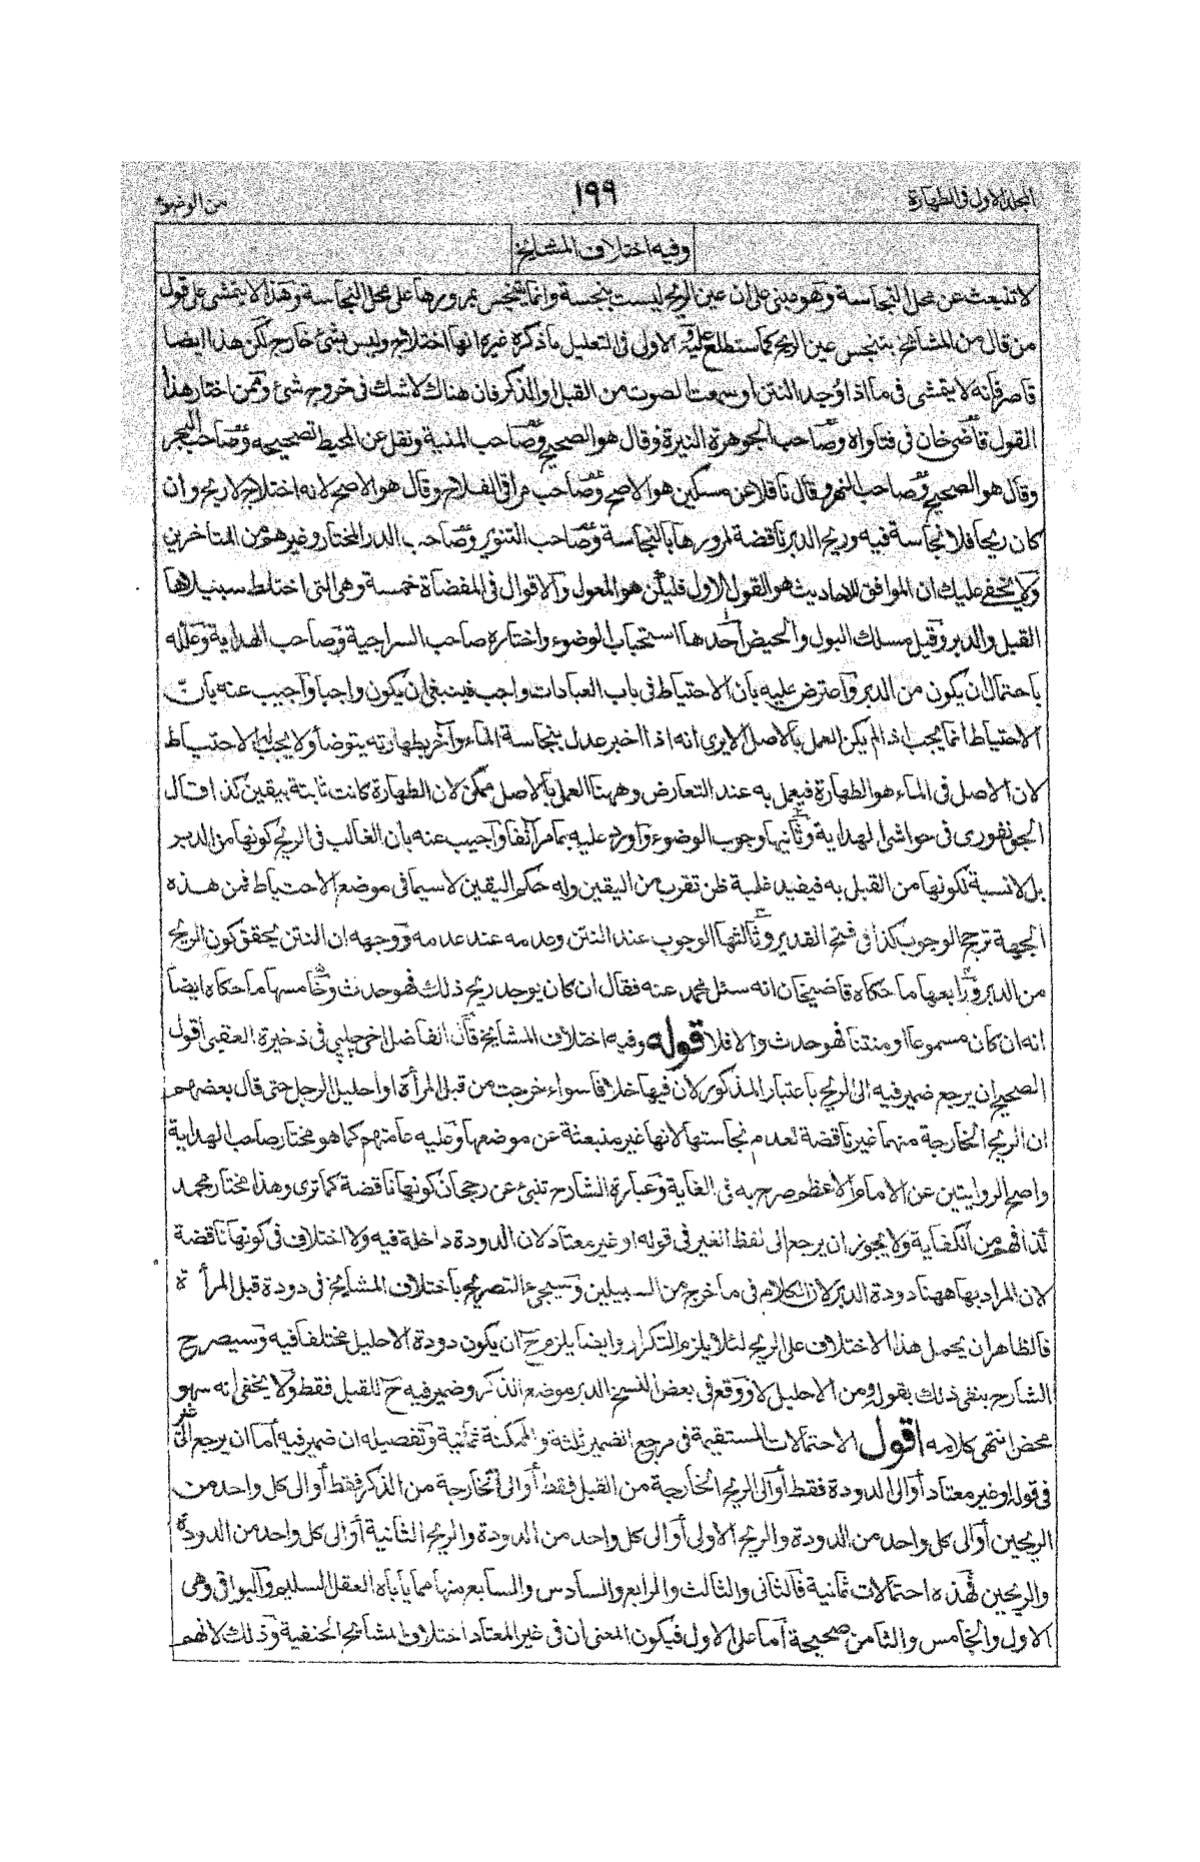 المجلد الاول فى الطهارة
١٩٩
من الوضوء
وفيه اختلاف المشايخ
لا تنبعث عن محل النجاسة وهو مبنى على ان عين الريح ليست بنجسة وانما يتنجس بمرورها على محل النجاسة وهذا لا يتمشى على قول
من قال من المشائخ بتنجس عين الريح كما ستطلع عليه والاولى فى التعليل ما ذكره غيره انها اختلاج وليس بشئ خارج لكن هذا ايضا
قاصر فانه لا يتمشى فى ما اذا وُجد النتن او سمعت الصوت من القبل او الذكر فان هناك لا شك فى خروج شئ وممن اختار هذا
القول قاضى خان فى فتاواه وصاحب الجوهرة النيرة وقال هو الصحيح وصاحب المنية ونقل عن المحيط تصحيحه وصاحب البحر
وقال هو الصحيح وصاحب النهر وقال ناقلا عن مسكين هو الاصح وصاحب مراقى الفلاح وقال هو الاصح لانه اختلاج لا ريح وان
كان ريحا فلا نجاسة فيه وريح الدبر ناقضة لمرورها بالنجاسة وصاحب التنوير وصاحب الدر المختار وغيرهم من المتاخرين
ولا يخفى عليك ان الموافق للاحاديث هو القول الاول فليكن هو المعول والاقوال فى المفضاة خمسة وهى التى اختلط سبيلاها
القبل والدبر وقيل مسلك البول والحيض احدها استحباب الوضوء واختاره صاحب السراجية وصاحب الهداية وعلله
باحتمال ان يكون من الدبر واعترض عليه بان الاحتياط فى باب العبادات واجب فينبغى ان يكون واجبا واجيب عنه بان
الاحتياط انما يجب اذا لم يكن العمل بالاصل الا يرى انه اذا اخبر عدل بنجاسة الماء وآخر بطهارته يتوضأ ولا يجب له الاحتياط
لان الاصل فى الماء هو الطهارة فيعمل به عند التعارض وههنا العمل بالاصل ممكن لان الطهارة كانت ثابتة بيقين كذا قال
الجونفورى فى حواشى الهداية وثانيها وجوب الوضوء واورد عليه بما مر آنفا واجيب عنه بان الغالب فى الريح كونها من الدبر
بل لا نسبة لكونها من القبل به فيفيد غلبة ظن تقرب من اليقين وله حكم اليقين لا سيما فى موضع الاحتياط فمن هذه
الجهة ترجح الوجوب كذا فى فتح القدير وثالثها الوجوب عند النتن وعدمه عند عدمه ووجهه ان النتن يحقق كون الريح
من الدبر ورابعها ما حكاه قاضيخان انه سئل محمد عنه فقال ان كان يوجد ريح ذلك فهو حدث وخامسها ما حكاه ايضا
انه ان كان مسموعا او منتنا فهو حدث والا فلا قوله وفيه اختلاف المشايخ قال الفاضل اخى چلپى فى ذخيرة العقبى اقول
الصحيح ان يرجع ضمير فيه الى الريح باعتبار المذكور لان فيها خلافا سواء خرجت من قبل المرأة او احليل الرجل حتى قال بعضهم
ان الريح الخارجة منهما غير ناقضة لعدم نجاستها لانها غير منبعثة عن موضعها وعليه عامتهم كما هو مختار صاحب الهداية
واصح الروايتين عن الامام الاعظم صرح به فى الغاية وعبارة الشارح تنبئ عن رجحان كونها ناقضة كما ترى وهذا مختار محمد
كذا فهم من الكفاية ولا يجوز ان يرجع الى لفظ الغير فى قوله او غير معتاد لان الدودة داخلة فيه ولا اختلاف فى كونها ناقضة
لان المراد بها ههنا دودة الدبر لان الكلام فى ما خرج من السبيلين وسيجئ التصريح باختلاف المشايخ فى دودة قبل المرأة
فالظاهر ان يحمل هذا الاختلاف على الريح لئلا يلزم التكرار وايضا يلزم ح ان يكون دودة الاحليل مختلفا فيه وسيصرح
الشارح بنفى ذلك بقوله ومن الاحليل لا ووقع فى بعض النسخ الدبر موضع الذكر وضمير فيه ح للقبل فقط ولا يخفى انه سهو
محض انتهى كلامه اقول الاحتمالات المستقيمة فى مرجع الضمير ثلثة والممكنة ثمانية وتفصيله ان ضمير فيه اما ان يرجع الى غير
فى قوله او غير معتاد او الى الدودة فقط او الى الريح الخارجة من القبل فقط او الى الخارجة من الذكر فقط او الى كل واحد من
الريحين او الى كل واحد من الدودة والريح الاولى او الى كل واحد من الدودة والريح الثانية او الى كل واحد من الدودة
والريحين فهذه احتمالات ثمانية فالثانى والثالث والرابع والسادس والسابع منها مما ياباه العقل السليم والبواقى وهى
الاول والخامس والثامن صحيحة اما على الاول فيكون المعنى ان فى غير المعتاد اختلاف المشائخ الحنفية وذلك لانهم